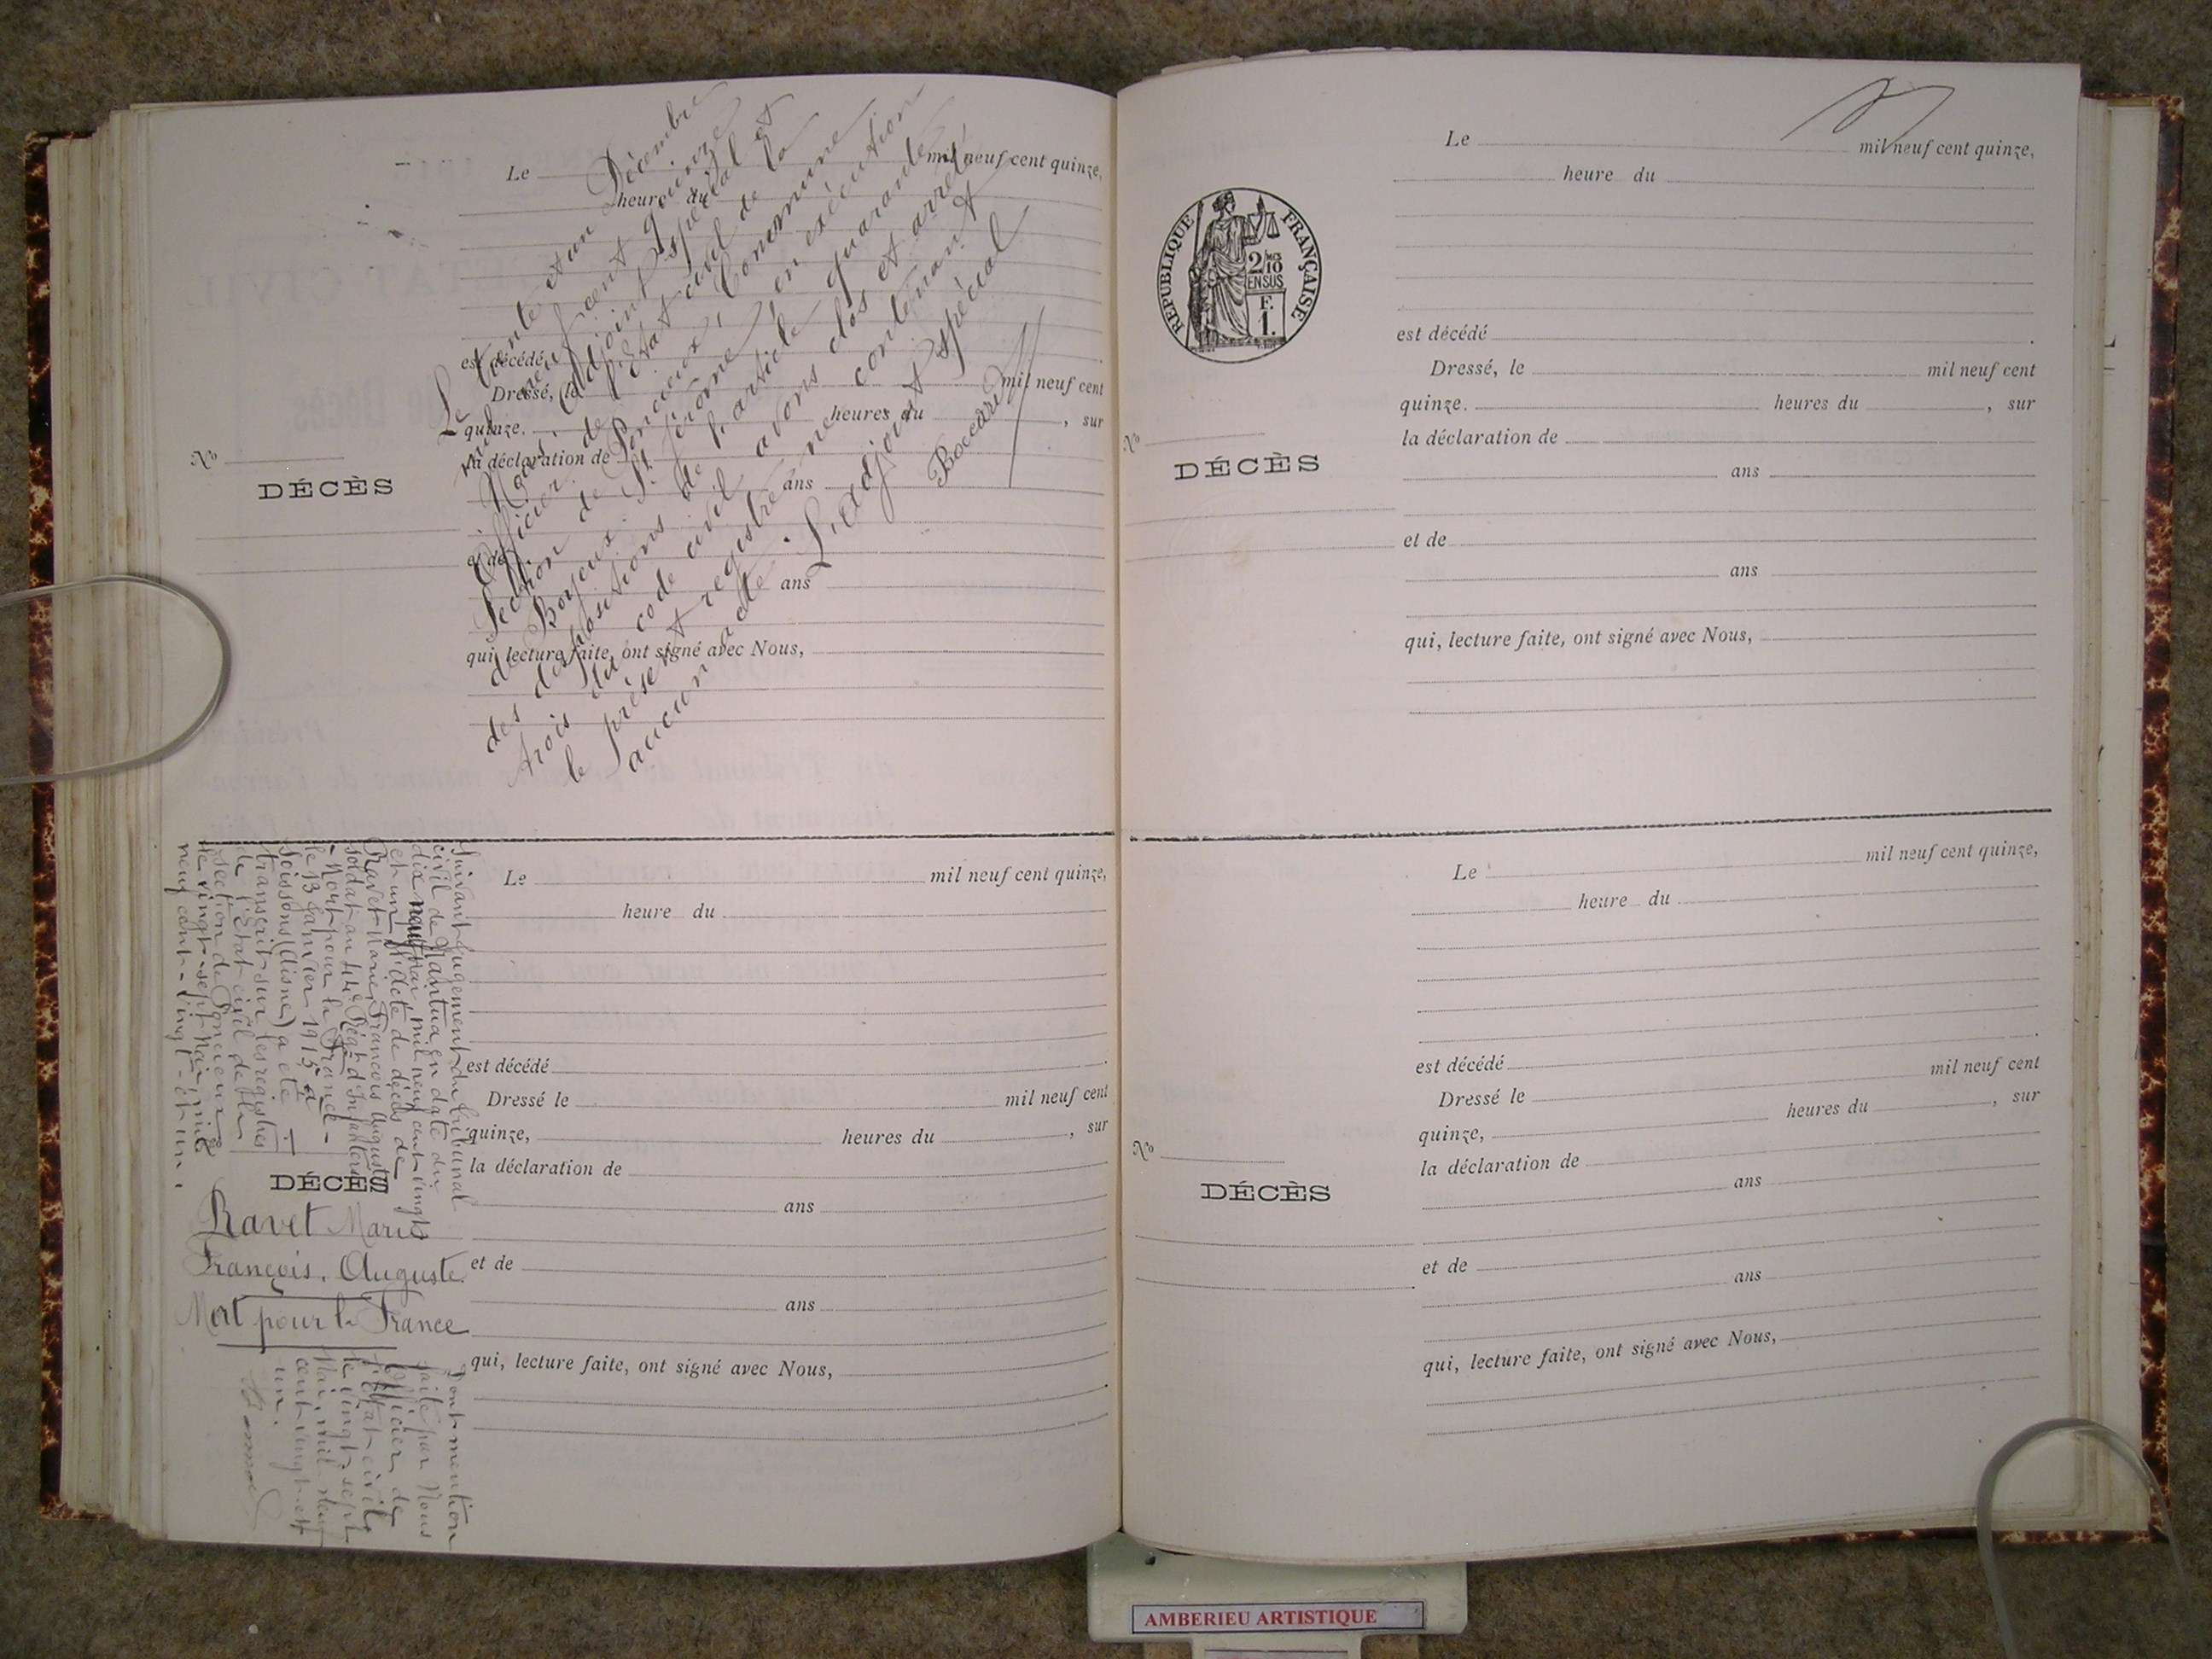 Le mil neuf cent quinze,
heure du
est décédé
Dressé, le mil neuf cent
quinze. heures du , sur
la déclaration de
ans
et de
ans
qui, lecture faite, ont signé avec Nous,
No
DÉCÈS
Le trente et un Décembre
mil neuf cent quinze
Nous, Adjoint spécial et
Officier de l'Etat civil de la
Section de Poncieux, Commune
de Boyeux-St Jérôme, en exécution
des dispositions de l'article quarante
trois du code civil avons clos et arrêté
le présent registre ne contenant
aucun acte. L'adjoint spécial
Boccard
Suivant Jugement du tribunal
civil de Nantua en date du
dix neuf mai mil neuf cent vingt
et un l'acte de décès de
Ravet Marie, François Auguste
soldat au 44e Régt d'Infanterie
- Mort pour la France -
le 13 Janvier 1915 à
Soissons (Aisne) a été
transcrit sur les registres
de l'Etat civil de la
section de Poncieux
le vingt-sept Mai, mil
neuf cent-vingt-et-un.
DÉCÈS
Ravet Marie
François, Auguste.
Mort pour la France
Dont mention
faite par Nous
Officier de
l'Etat civil
le vingt sept
Mai, mil neuf
cent vingt et
un.
Le mil neuf cent quinze,
heure du
est décédé
Dressé le mil neuf cent
quinze, heures du , sur
la déclaration de
ans
et de
ans
qui, lecture faite, ont signé avec Nous,
Le mil neuf cent quinze,
heure du
RÉPUBLIQUE FRANÇAISE
2/10
EN SUS
F.
1.
est décédé
Dressé, le mil neuf cent
quinze. heures du , sur
la déclaration de
No
DÉCÈS
ans
et de
ans
qui, lecture faite, ont signé avec Nous,
Le mil neuf cent quinze,
heure du
est décédé
Dressé le mil neuf cent
quinze, heures du , sur
la déclaration de
No
DÉCÈS
ans
et de
ans
qui, lecture faite, ont signé avec Nous,
AMBERIEU ARTISTIQUE